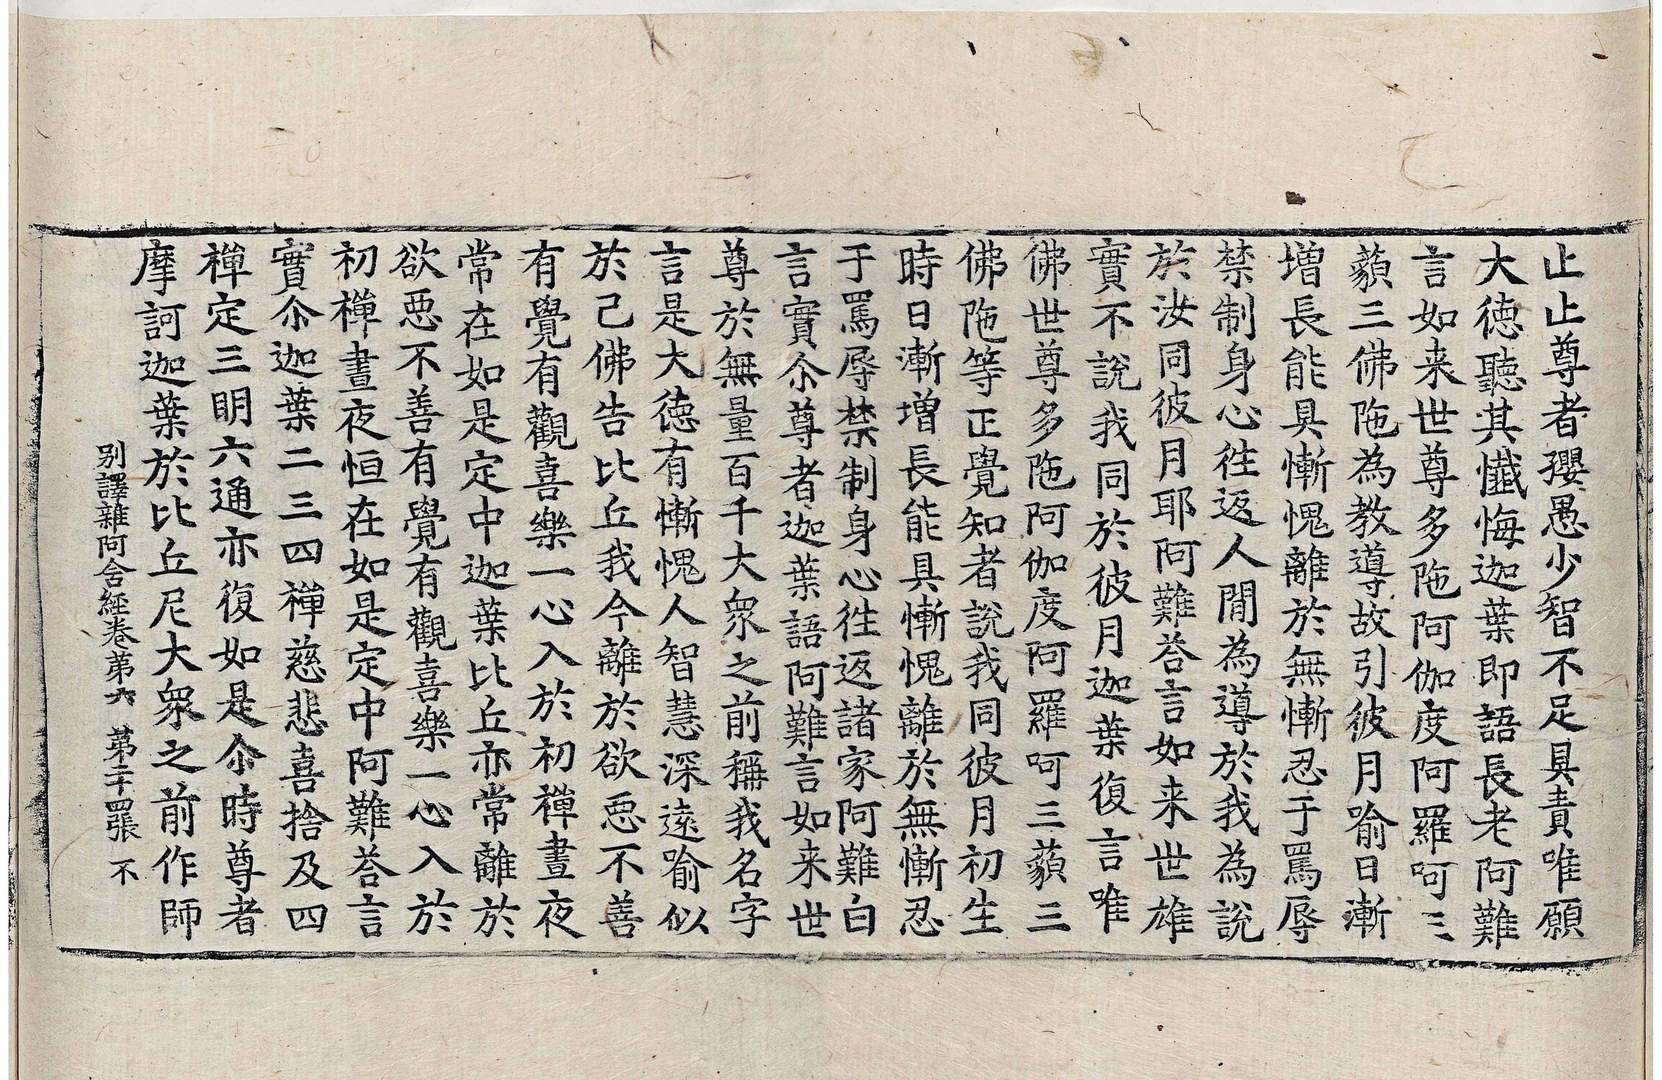 止止尊者孾愚少智不足具責唯願
大徳聽其懺悔迦葉即語長老阿難
言如来世尊多陁阿伽度阿羅呵三
藐三佛陁為教導故引彼月喻日漸
增長能具慚愧離於無慚忍于罵辱
禁制身心往返人間為導於我為說
於汝同彼月耶阿難荅言如来世雄
實不說我同於彼月迦葉復言唯
佛世尊多陁阿伽度阿羅呵三藐三
佛陁等正覺知者說我同彼月初生
時日漸增長能具慚愧離於無慚忍
于罵辱禁制身心往返諸家阿難白
言實尒尊者迦葉語阿難言如来世
尊於無量百千大衆之前稱我名字
言是大徳有慚愧人智慧深遠喻似
於己佛告比丘我今離於欲惡不善
有覺有觀喜樂一心入於初禪晝夜
常在如是定中迦葉比丘亦常離於
欲惡不善有覺有觀喜樂一心入於
初禪晝夜恒在如是定中阿難荅言
實尒迦葉二三四禪慈悲喜捨及四
禪定三明六通亦復如是尒時尊者
摩訶迦葉於比丘尼大衆之前作師
別譯雜阿含經卷第六　第二十四張　不